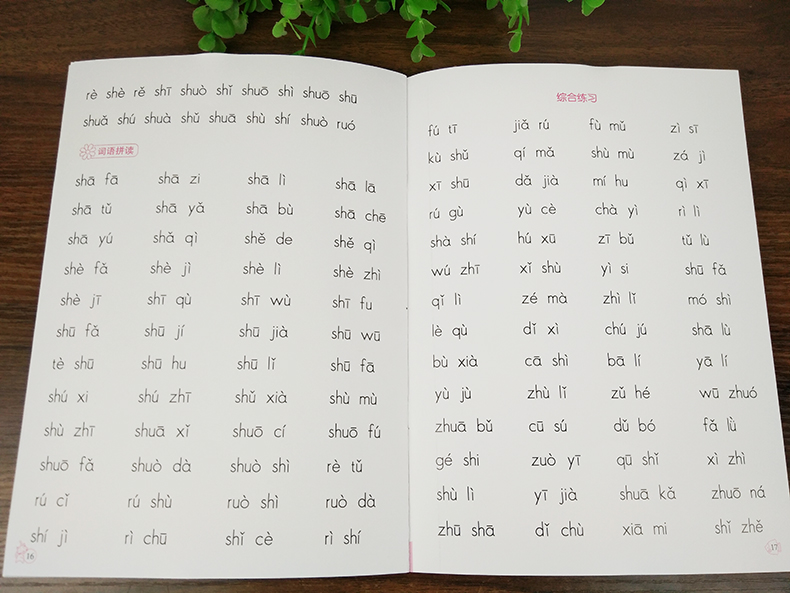 rè shè rě shī shuò shǐ shuō shì shuō shū
shuǎ shú shuà shǔ shuā shù shí shuò ruó
词语拼读
shā fā shā zi shā lì shā lā
shā tǔ shā yǎ shā bù shā chē
shā yú shǎ qì shě de shě qì
shè fǎ shè jì shè lì shè zhì
shè jī shī qù shī wù shī fu
shū fǎ shū jí shū jià shū wū
tè shū shū hu shū lǐ shū fā
shú xi shú zhī shǔ xià shù mù
shù zhī shuā xǐ shuō cí shuō fú
shuō fǎ shuò dà shuò shì rè tǔ
rú cǐ rú shù ruò shì ruò dà
shí jì rì chū shǐ cè rì shí
16
综合练习
fú tī jiǎ rú fù mǔ zì sī
kù shǔ qí mǎ shù mù zá jì
xī shū dǎ jià mí hu qì xī
rú gù yù cè chà yì rì lì
shà shí hú xū zī bǔ tǔ lù
wú zhī xǐ shù yì si shū fǎ
qǐ lì zé mà zhì lǐ mó shì
lè qù dǐ xì chú jú shā lù
bù xià cā shì bā lí yā lí
yù jù zhù lǐ zǔ hé wū zhuó
zhuā bǔ cū sú dǔ bó fǎ lǜ
gé shi zuò yī qū shǐ xì zhì
shù lì yī jià shuā kǎ zhuō ná
zhū shā dǐ chù xiā mi shǐ zhě
17